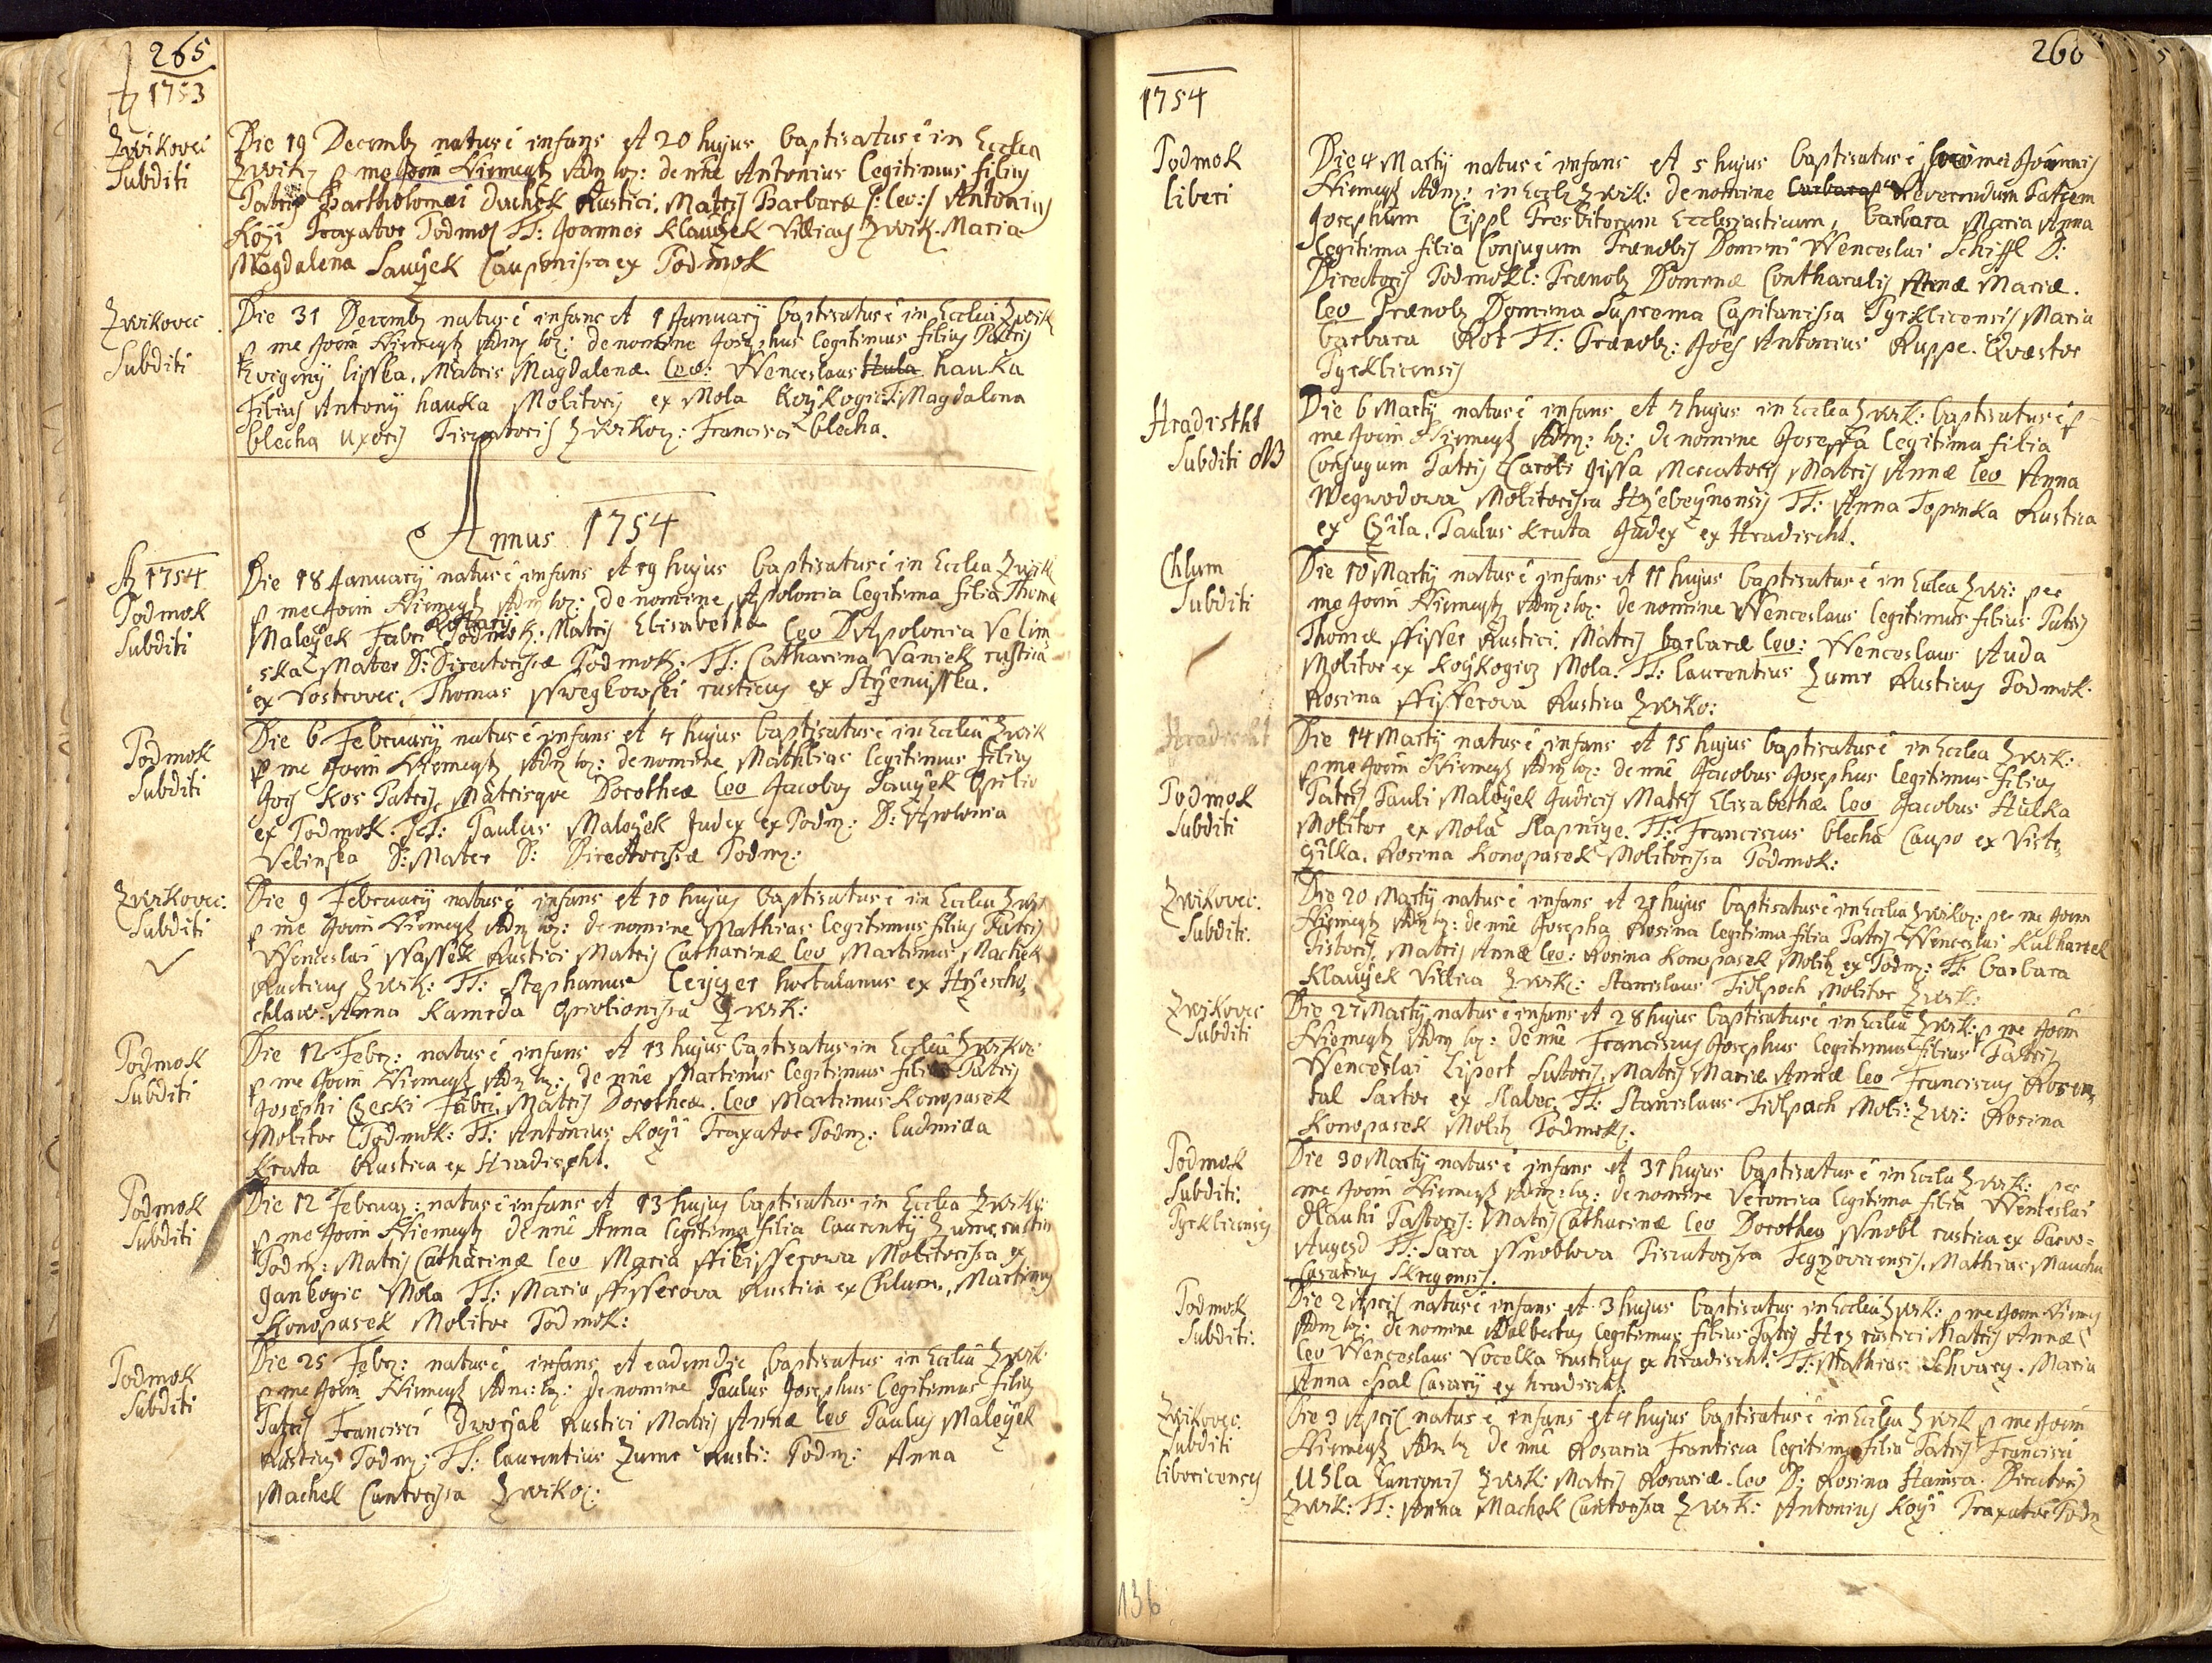 265
A 1753
Zwikovei
Subditi
Die 19 Decemb natus ē infans et 20 hujus baptisatus ē in Ecclia
Zwik p me Joem Niemeyz Adm loz: de nne Antonius Legitimus filius
Patris Bartholomei Duchek Rustici. Matris Barbaræ /: lev: / Antonius
Kozi Traxator Podmok TT: Joannes Klauzek Villicus Zwik. Maria
Magdalena Sauzek Cauponissa ex Podmok
Zwikovec
Subditi
Die 31 Decemb natus ē infans et 1 January baptisatus ē in Ecclia Zwik
p me Joem Niemeyz Adm loz: de nomine Josephus legitimus filius Patris
lisska. Matris Magdalenæ. lev: Wenceslaus Hula hauka
filius Antony hauka Molitoris ex Mola TT: Magdalena
blecha uxoris Piscatoris Zwikoz: Francisci blecha.
Annus 1754
A 1754
Podmok
Subditi
Die 18 January natus ē infans et 19 hujus baptisatus ē in Ecclia Zwik
p me Joem Niemeyz Adm loz: de nomine Apolonia Legitima filia Thomæ
Malezek Fabri Podmok: Matris Elisabethæ lev D Apolonia Velim
ska Mater D: Directorissæ Podmok: TT: Catharina Vaniek rustica
ex Vostrovec. Thomas rusticus ex
Podmok
Subditi
Die 6 February natus ē infans et 7 hujus baptisatus ē in Ecclia Zwik
p me Joem Niemeyz Adm loz: de nomine Mathias legitimus filius
Jois Kos Patris, Matrisque Dorotheæ lev Jacobus Sauzek Opilio
ex Podmok. TT: Paulus Malezek Judex ex Podm: D: Apolonia
Velinska D: Mater D: Directorissæ Podm:
Zwikovec:
Subditi
Die 9 February natus ē infans et 10 hujus baptisatus ē in Ecclia Zwik
p me Joem Niemeyz Adm loz: de nomine Mathias legitimus filius Patris
Wenceslai Wassek Rustici Matris Catharinæ lev Martinus Machek
Rusticus Zwik: TT: Stephanus hortulanus ex
Anna Kameda Opilionissa Zwik:
Podmok
Subditi
Die 12 Febr: natus ē infans et 13 hujus baptisatus in Ecclia Zwikov
p me Joem Niemeyz Adm loz: de nne Martinus legitimus filius Patris
Josephi Czeski Fabri. Matris Dorotheæ. lev Martinus Konopasek
Molitor Podmok: TT: Antonius Kozi Traxator Podm: Ludmila
Krata Rustica ex Hradischt.
Podmok
Subditi
Die 12 Februar: natus ē infans et 13 hujus baptisatus in Ecclia Zwik:
p me Joem Niemeyz de nne Anna legitima filia Laurenty Zumr rustici
Podm: Matris Catharinæ lev Maria Molitorissa ex
Mola TT: Maria ffisserova Rustica ex Chlum. Martinus
Konopasek Molitor Podmok:
Podmok
Subditi
Die 25 Febr: natus ē infans et eadem die baptisatus in Ecclia Zwik
p me Joem Niemeyz Adm: loz: de nomine Paulus Josephus legitimus filius
Patris Francisci Dworzak Rustici Matris Annæ lev Paulus Malezek
Rusticus Podm: TT: laurentius Zumr Rusti: Podm: Anna
Machek Cantorissa Zwikoz:
260
1754
Podmok
liberi
Die 4 Marty natus ē infans et 5 hujus baptisatus ē loco mei Joannis
Niemeyz Adm: in Eccl: Zwik: de nomine Reverendum Patrem
Josephum Cippl Presbiterum Ecclesiasticum, Barbara Maria Anna
Legitima filia Conjugum Prænobis Domini Wenceslai Schiffl D:
Directoris Podmokl: Prænob Dominæ Contharalis Annæ Mariæ.
lev Prænob Domina Suprema Capitanissa Pyrklicensis Maria
Barbara Rot TT: Prænob: Jões Antonius Ruppe. Quæstor
Pyrklicensis
Hradistht
Subditi
Die 6 Marty natus ē infans et 7 hujus in Ecclia Zwik: baptisatus ē p
me Joem Niemeyz Adm: loz: de nomine Joseffa legitima filia
Conjugum Patris Caroli Jissa Mercatoris Matris Annæ lev Anna
Wegwodowa Molitorissa TT: Anna Topinka Rustica
ex Czila. Paulus Krata Judex ex Hradischt.
Chlum
Subditi
Die 10 Marty natus ē infans et 11 hujus baptisatus ē in Ecclea Zwi: per
me Joem Niemeyz Adm: loz: de nomine Wenceslaus legitimus filius Patris
Thomæ ffisser Rustici. Matris barbaræ lev: Wenceslaus Auda
Molitor ex Mola. TT: laurentius Zumr Rusticus Podmok.
Rosina ffisserova Rustica Zwiko:
Hradischt
Podmok
Subditi
Die 14 Marty natus ē infans et 15 hujus baptisatus ē in Ecclea Zwik:
p me Joem Niemeyz Adm: loz: de nne Jacobus Josephus legitimus filius
Patris Pauli Malezek Judicis Matris Elisabethæ lev Jacobus Hulka
Molitor ex Mola Slapnize. TT: Franciscus blecha Caupo ex Viste
Rosina Konopasek Molitorissa Podmok:
Zwikovec:
Subditi.
Die 20 Marty natus ē infans et 21 hujus baptisatus ē in Ecclia Zwikoz: per me Joem
Niemeyz Adm loz: de nne Josepha Rosina legitima filia Patris Wenceslai Kulhanek
Pistoris. Matris Annæ lev: Rosina Konopasek Molit ex Podm: TT: barbara
Klauzek Villica Zwik: Stanislaus Molitor Zwik:
Zwikovec
Subditi
Die 27 Marty natus ē infans et 28 hujus baptisatus ē in Ecclia Zwik: p me Joem
Niemeyz Adm loz: de nne Franciscus Josephus legitimus filius Patris
Wenceslai Lipert Sutoris. Matris Mariæ Annæ lev Franciscus Rosen
tal Sartor ex Slabec TT: Stanislaus Moli: Zwi: Rosina
Konopasek Molit Podmok:
Podmok
Subditi.
Pyrklicensis
Die 30 Marty natus ē infans et 31 hujus baptisatus ē in Ecclia Zwik: per
me Joem Niemeyz Adm: loz: de nomine Veronica legitima filia Wenceslai
Hauhi Pastoris: Matris Catharinæ lev Dorothea rustica ex Parvo=
Augezd TT: Sara Piscatorissa Mathias Maucha
Casarius Skregensis.
Podmok
Subditi.
Die 2 April natus ē infans et 3 hujus baptisatus in Ecclia Zwik: p me Joem Niemey
Adm loz: de nomine Adalbertus legitimus filius Patris rustici Matris Annæ
lev Wenceslaus Vocelka rusticus ex hradischt. TT: Mathias Schvarz. Maria
Anna Casary ex hradischt.
Zwikovec:
Subditi
liboricenses
Die 3 April natus ē infans et 4 hujus baptisatus ē in Ecclia Zwik p me Joem
Niemeyz Adm loz de nne Rosaria Frantisca legitima filia Patris Francisci
Zwik: Matris Rosariæ. lev D: Rosina Directoris
Zwik: TT: Anna Machek Cantorissa Zwik: Antonius Kozi Traxator Podm
136